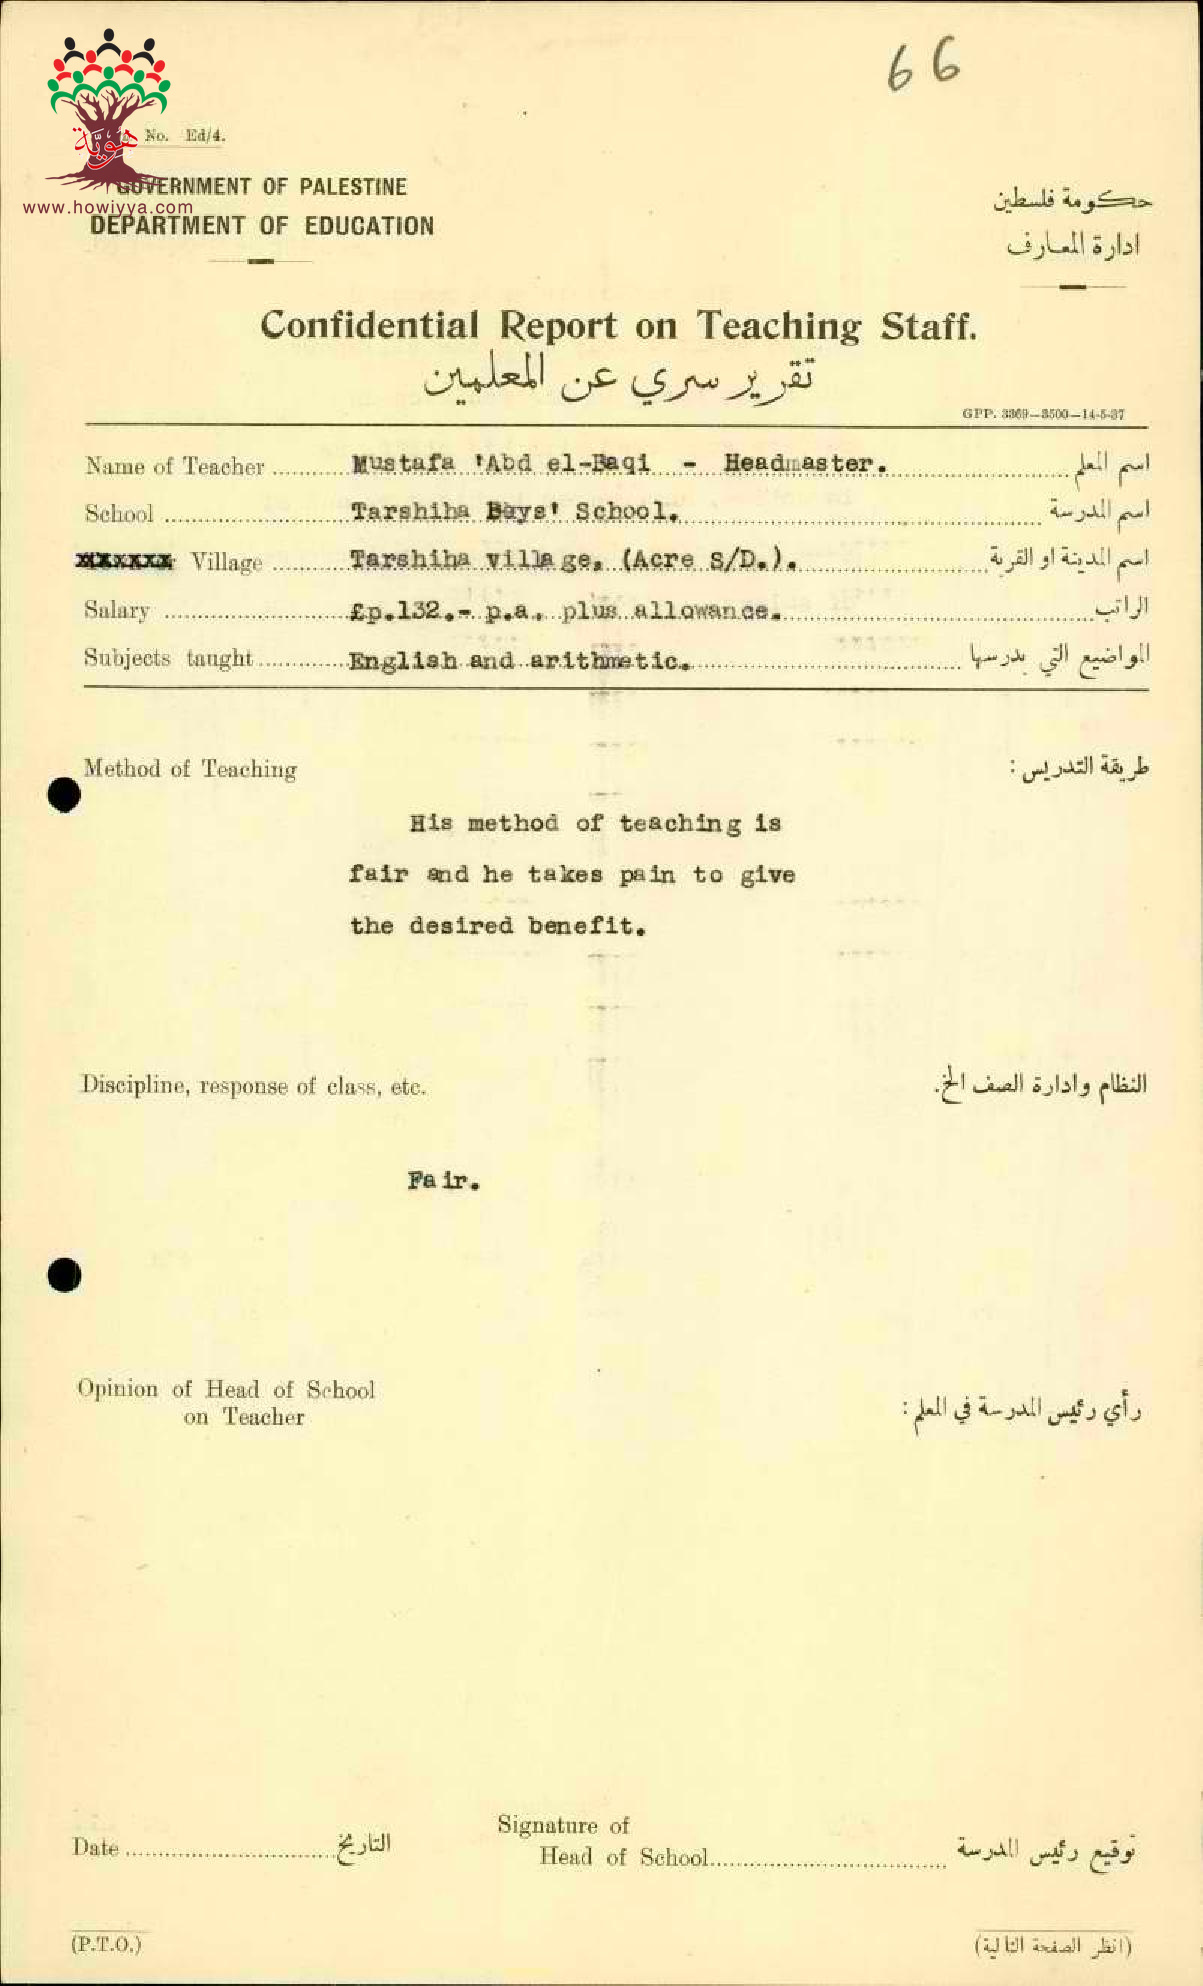 66
هويّة
No. Ed/4.
www.howiyya.com
GOVERNMENT OF PALESTINE
DEPARTMENT OF EDUCATION
حكومة فلسطين
ادارة المعارف
Confidential Report on Teaching Staff.
تقرير سري عن المعلمين
GPP. 3369—3500—14-5-37
Name of Teacher Mustafa 'Abd el-Baqi - Headmaster. اسم المعلم
School Tarshiha Boys' School. اسم المدرسة
Village Tarshiha village, (Acre S/D.). اسم المدينة او القرية
Salary £p.132.- p.a. plus allowance. الراتب
Subjects taught English and arithmetic. المواضيع التي يدرسها
Method of Teaching طريقة التدريس :
His method of teaching is
fair and he takes pain to give
the desired benefit.
Discipline, response of class, etc. النظام وادارة الصف الخ.
Fair.
Opinion of Head of School
on Teacher
رأي رئيس المدرسة في المعلم :
Date التاريخ
Signature of
Head of School توقيع رئيس المدرسة
(P.T.O.) (انظر الصفحة التالية)